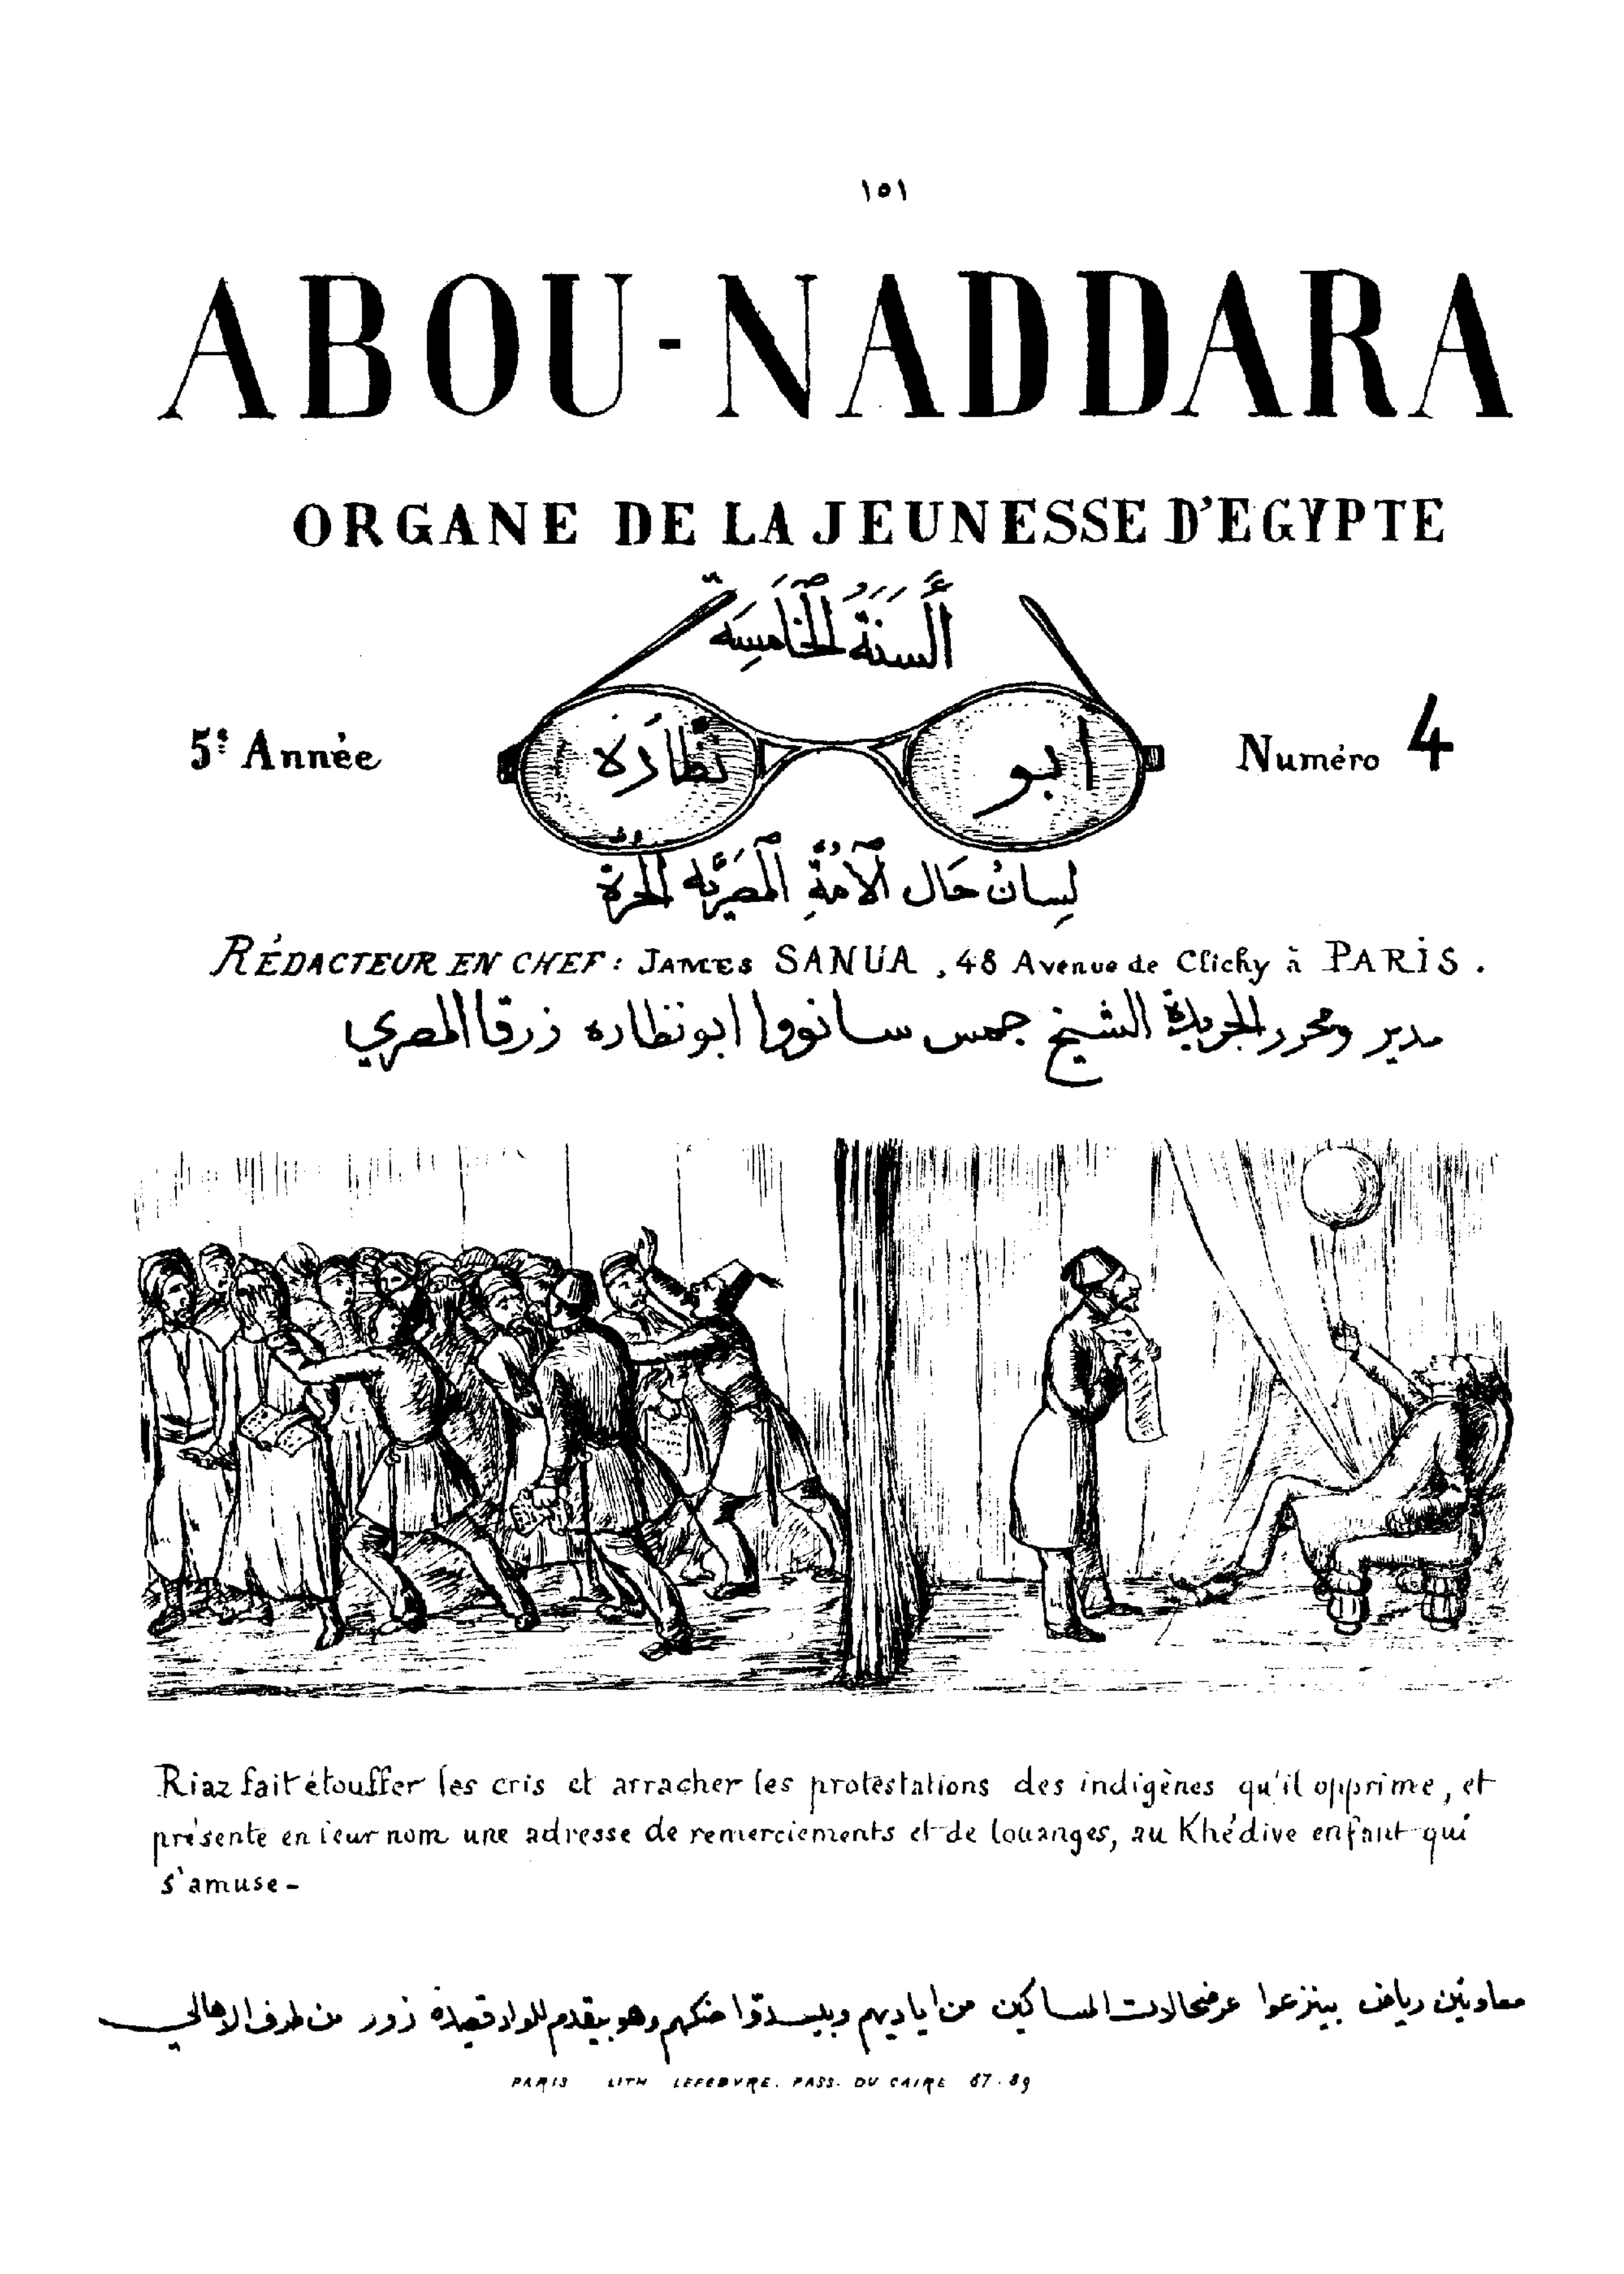 ١٥١
ABOU-NADDARA
ORGANE DE LA JEUNESSE D'EGYPTE
أَلسَنَةُ الخَامِسَه
5e Année
ابو نظارَه
Numéro 4
لِسانُ حَال الأُمّةِ المصَريَّه الحُرّة
RÉDACTEUR EN CHEF: JAMES SANUA, 48 Avenue de Clichy à PARIS.
مدير ومحرر الجريدة الشيخ جمس سانووا ابو نظاره زرقا المصري
Riaz fait étouffer les cris et arracher les protestations des indigènes qu'il opprime, et
présente en leur nom une adresse de remerciements et de louanges, au Khédive enfant qui
s'amuse-
معاونين رياض بينزعوا عرضحالات المساكين من اياديهم وبيسدّوا حنكهم وهو بيقدم للواد قصيدة زور من طرف الاهالي
PARIS LITH LEFEBVRE. PASS. DU CAIRE 87-89